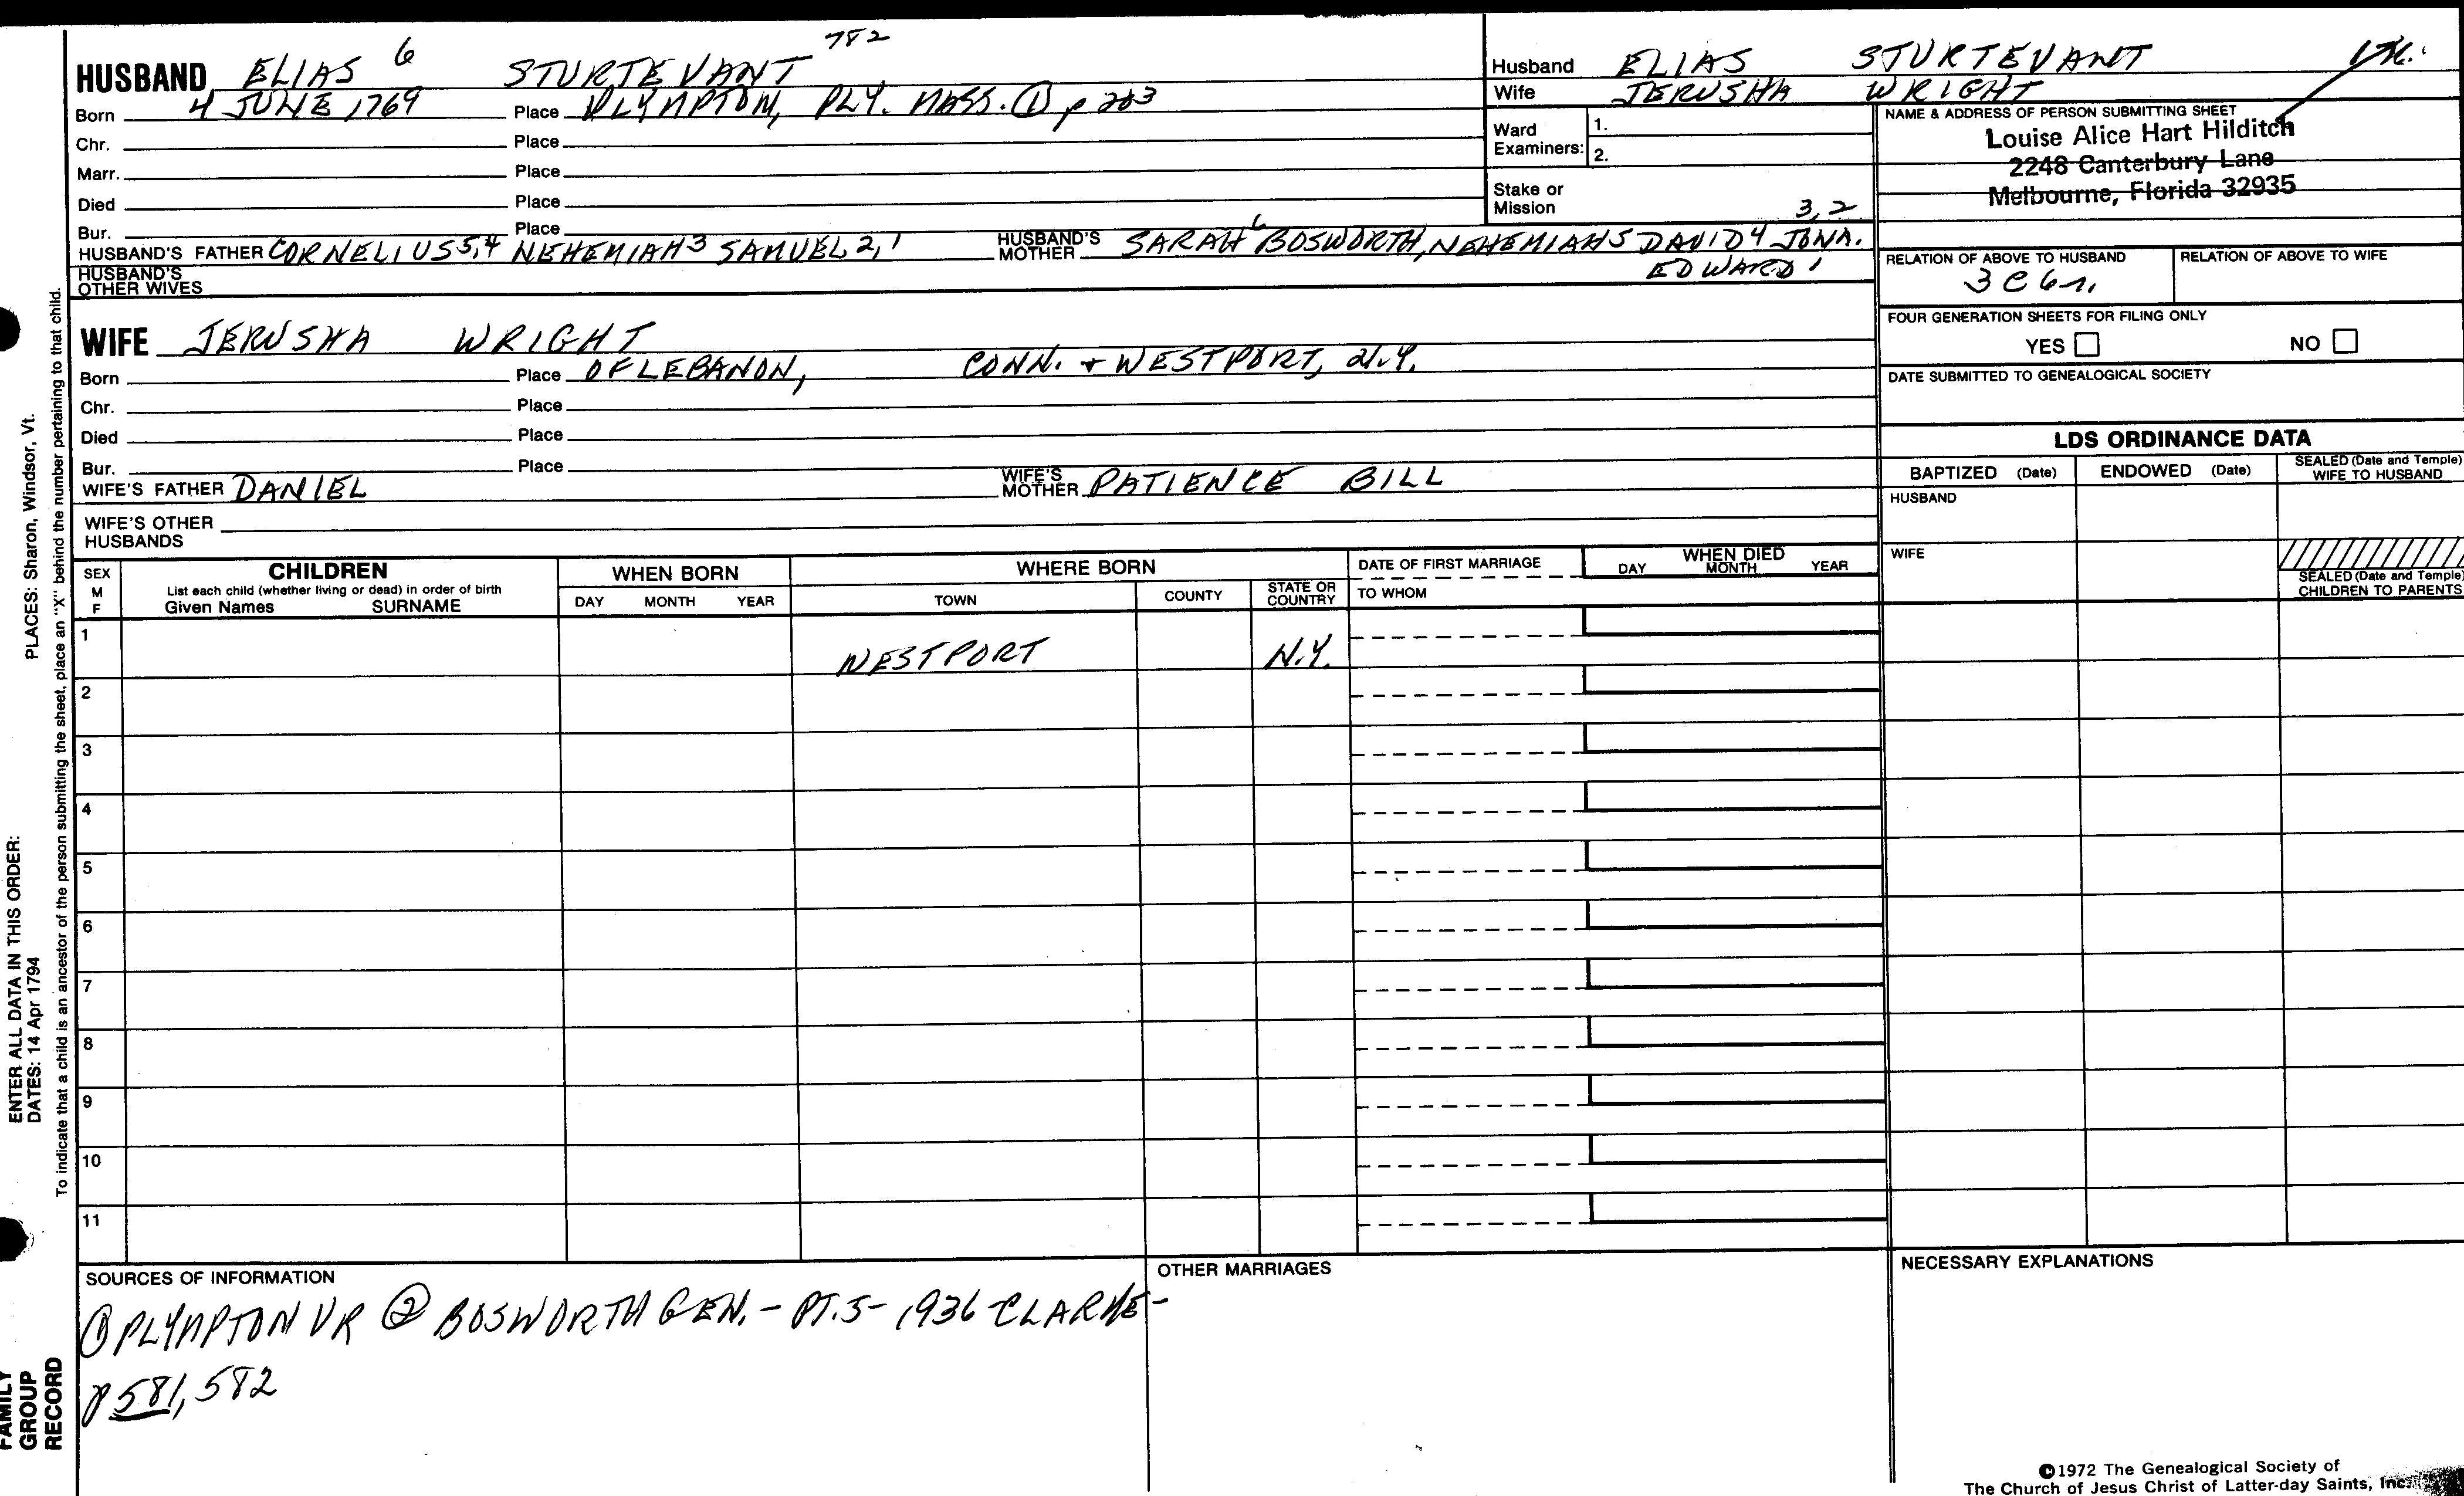 782
HUSBAND ELIAS 6 STURTEVANT
Born 4 JUNE 1769 Place PLYMPTON, PLY. MASS. ① p 203
Chr. Place
Marr. Place
Died Place
Bur. Place
HUSBAND'S FATHER CORNELIUS 5,4 NEHEMIAH 3 SAMUEL 2,1 HUSBAND'S MOTHER SARAH 6 BOSWORTH, NEHEMIAH 5 DAVID 4 JONA. 3,2
EDWARD 1
HUSBAND'S OTHER WIVES
Husband ELIAS STURTEVANT
Wife JERUSHA WRIGHT
Ward Examiners: 1.
2.
Stake or Mission
NAME & ADDRESS OF PERSON SUBMITTING SHEET
Louise Alice Hart Hilditch
2248 Canterbury Lane
Melbourne, Florida 32935
RELATION OF ABOVE TO HUSBAND RELATION OF ABOVE TO WIFE
3 C 6 r.
FOUR GENERATION SHEETS FOR FILING ONLY
YES NO
DATE SUBMITTED TO GENEALOGICAL SOCIETY
WIFE JERUSHA WRIGHT
Born Place OF LEBANON, CONN. + WESTPORT, N.Y.
Chr. Place
Died Place
Bur. Place
WIFE'S FATHER DANIEL WIFE'S MOTHER PATIENCE BILL
WIFE'S OTHER HUSBANDS
LDS ORDINANCE DATA
BAPTIZED (Date) ENDOWED (Date) SEALED (Date and Temple) WIFE TO HUSBAND
HUSBAND
WIFE
SEALED (Date and Temple) CHILDREN TO PARENTS
SEX M F
CHILDREN
List each child (whether living or dead) in order of birth
Given Names SURNAME
WHEN BORN
DAY MONTH YEAR
WHERE BORN
TOWN COUNTY STATE OR COUNTRY
DATE OF FIRST MARRIAGE
TO WHOM
WHEN DIED
DAY MONTH YEAR
1 WESTPORT N.Y.
2
3
4
5
6
7
8
9
10
11
SOURCES OF INFORMATION
① PLYMPTON VR ② BOSWORTH GEN. - PT. 5 - 1936 - CLARKE -
p 581, 582
OTHER MARRIAGES
NECESSARY EXPLANATIONS
©1972 The Genealogical Society of
The Church of Jesus Christ of Latter-day Saints, Inc.
PLACES: Sharon, Windsor, Vt.
To indicate that a child is an ancestor of the person submitting the sheet, place an "X" behind the number pertaining to that child.
ENTER ALL DATA IN THIS ORDER:
DATES: 14 Apr 1794
FAMILY
GROUP
RECORD